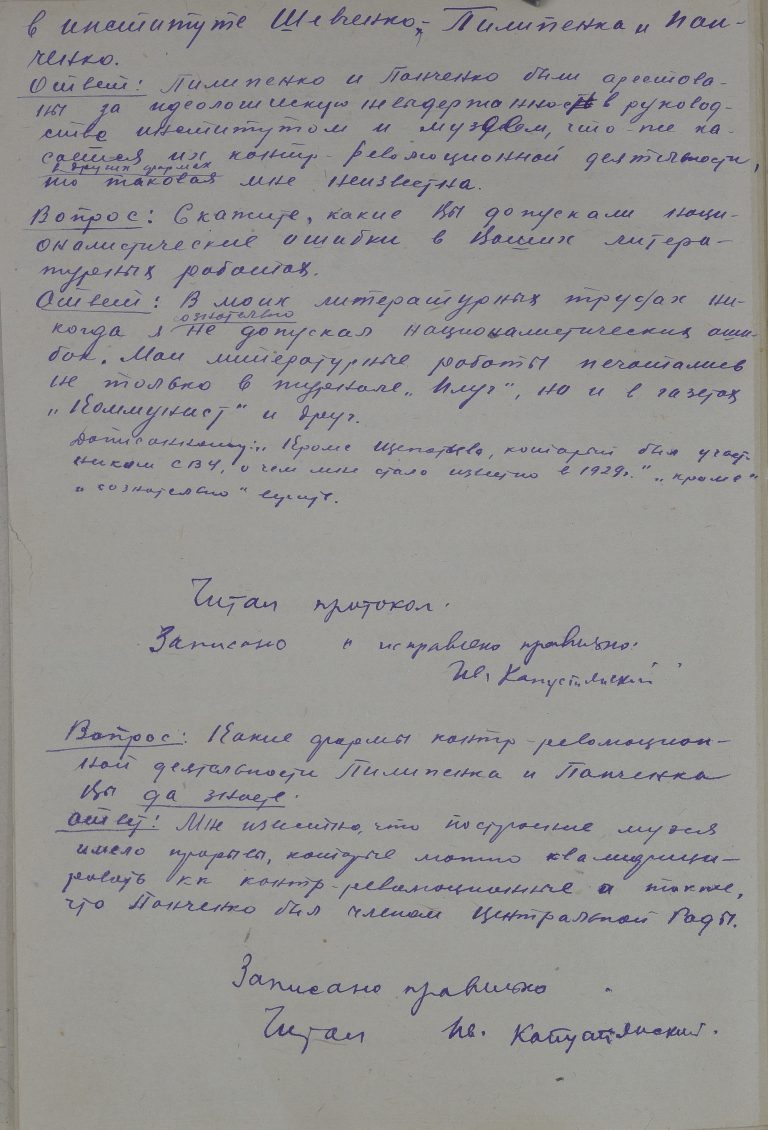 в институте Шевченко, - Пилипенка и Пан-
ченко.
Ответ: Пилипенко и Панченко были арестова-
ны за идеологическую невыдержанность в руковод-
стве институтом и музеем, что-же ка-
сается их контр-революционной деятельности,
в других формах
то таковая мне неизвестна.
Вопрос: Скажите, какие Вы допускали наци-
оналистические ошибки в Ваших литера-
турных работах.
Ответ: В моих литературных трудах ни-
сознательно
когда я не допускал националистических оши-
бок. Мои литературные работы печатались
не только в журнале „Плуг", но и в газетах
„Коммунист" и друг.
Дописанному: „Кроме Щепотьева, который был участ-
ником СВУ, о чем мне стало известно в 1929г." „кроме"
и „сознательно" верить.
Читал протокол.
Записано и исправлено правильно:
Ив. Капустянский
Вопрос: Какие формы контр-революцион-
ной деятельности Пилипенка и Панченка
Вы да знаете.
Ответ: Мне известно, что построение музея
имело прорывы, которые можно квалифици-
ровать кк контр-революционные а также,
что Панченко был членом Центральной Рады.
Записано правильно.
Читал Ив. Капустянский.